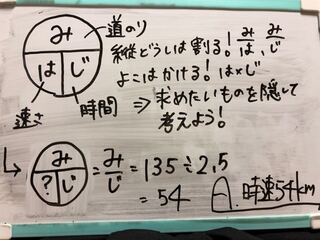 み
は じ
道のり
速さ
時間
縦どうしは割る! み/は、み/じ
よこはかける! は×じ
⇒ 求めたいものを隠して
考えよう!
↳ み ? じ = み/じ = 135÷2.5
= 54 A. 時速54km